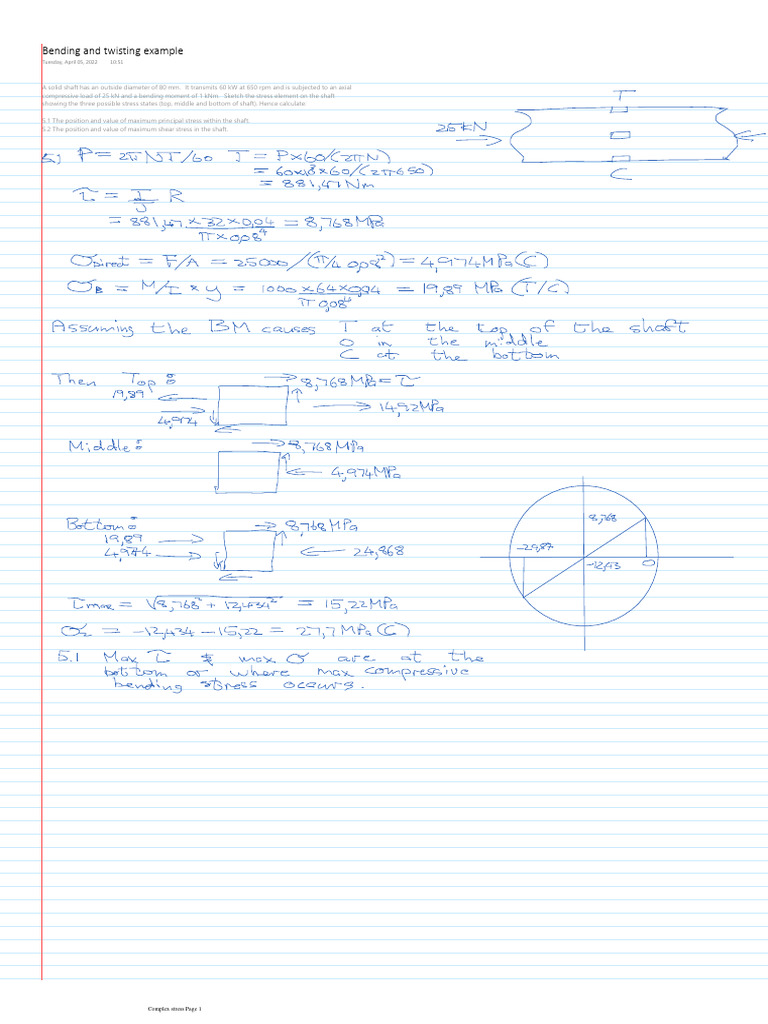 Bending and twisting example
Tuesday, April 05, 2022 10:51
A solid shaft has an outside diameter of 80 mm. It transmits 60 kW at 650 rpm and is subjected to an axial
compressive load of 25 kN and a bending moment of 1 kNm - Sketch the stress element on the shaft
showing the three possible stress states (top, middle and bottom of shaft). Hence calculate:
5.1 The position and value of maximum principal stress within the shaft.
5.2 The position and value of maximum shear stress in the shaft.
T
25 kN
C
5) P = 2πNT/60 T = P×60/(2πN)
= 60×10³×60/(2π650)
= 881,47 Nm
τ = T/J R
= 881,47×32×0,04/π×0,08⁴ = 8,768 MPa
σDirect = F/A = 25000/(π/4 0,08²) = 4,974 MPa (C)
σB = M/I × y = 1000×64×0,04/π0,08⁴ = 19,89 MPa (T/C)
Assuming the BM causes T at the top of the shaft
0 in the middle
C at the bottom
Then Top:
8,768 MPa = τ
19,89
14,92 MPa
4,974
Middle:
8,768 MPa
4,974 MPa
Bottom:
8,768 MPa
19,89
4,974
24,868
8,768
-24,87
-12,43
0
τmax = √8,768² + 12,434² = 15,22 MPa
σ2 = -12,434 - 15,22 = 27,7 MPa (C)
5.1 Max τ & max σ are at the
bottom or where max compressive
bending stress occurs.
Complex stress Page 1